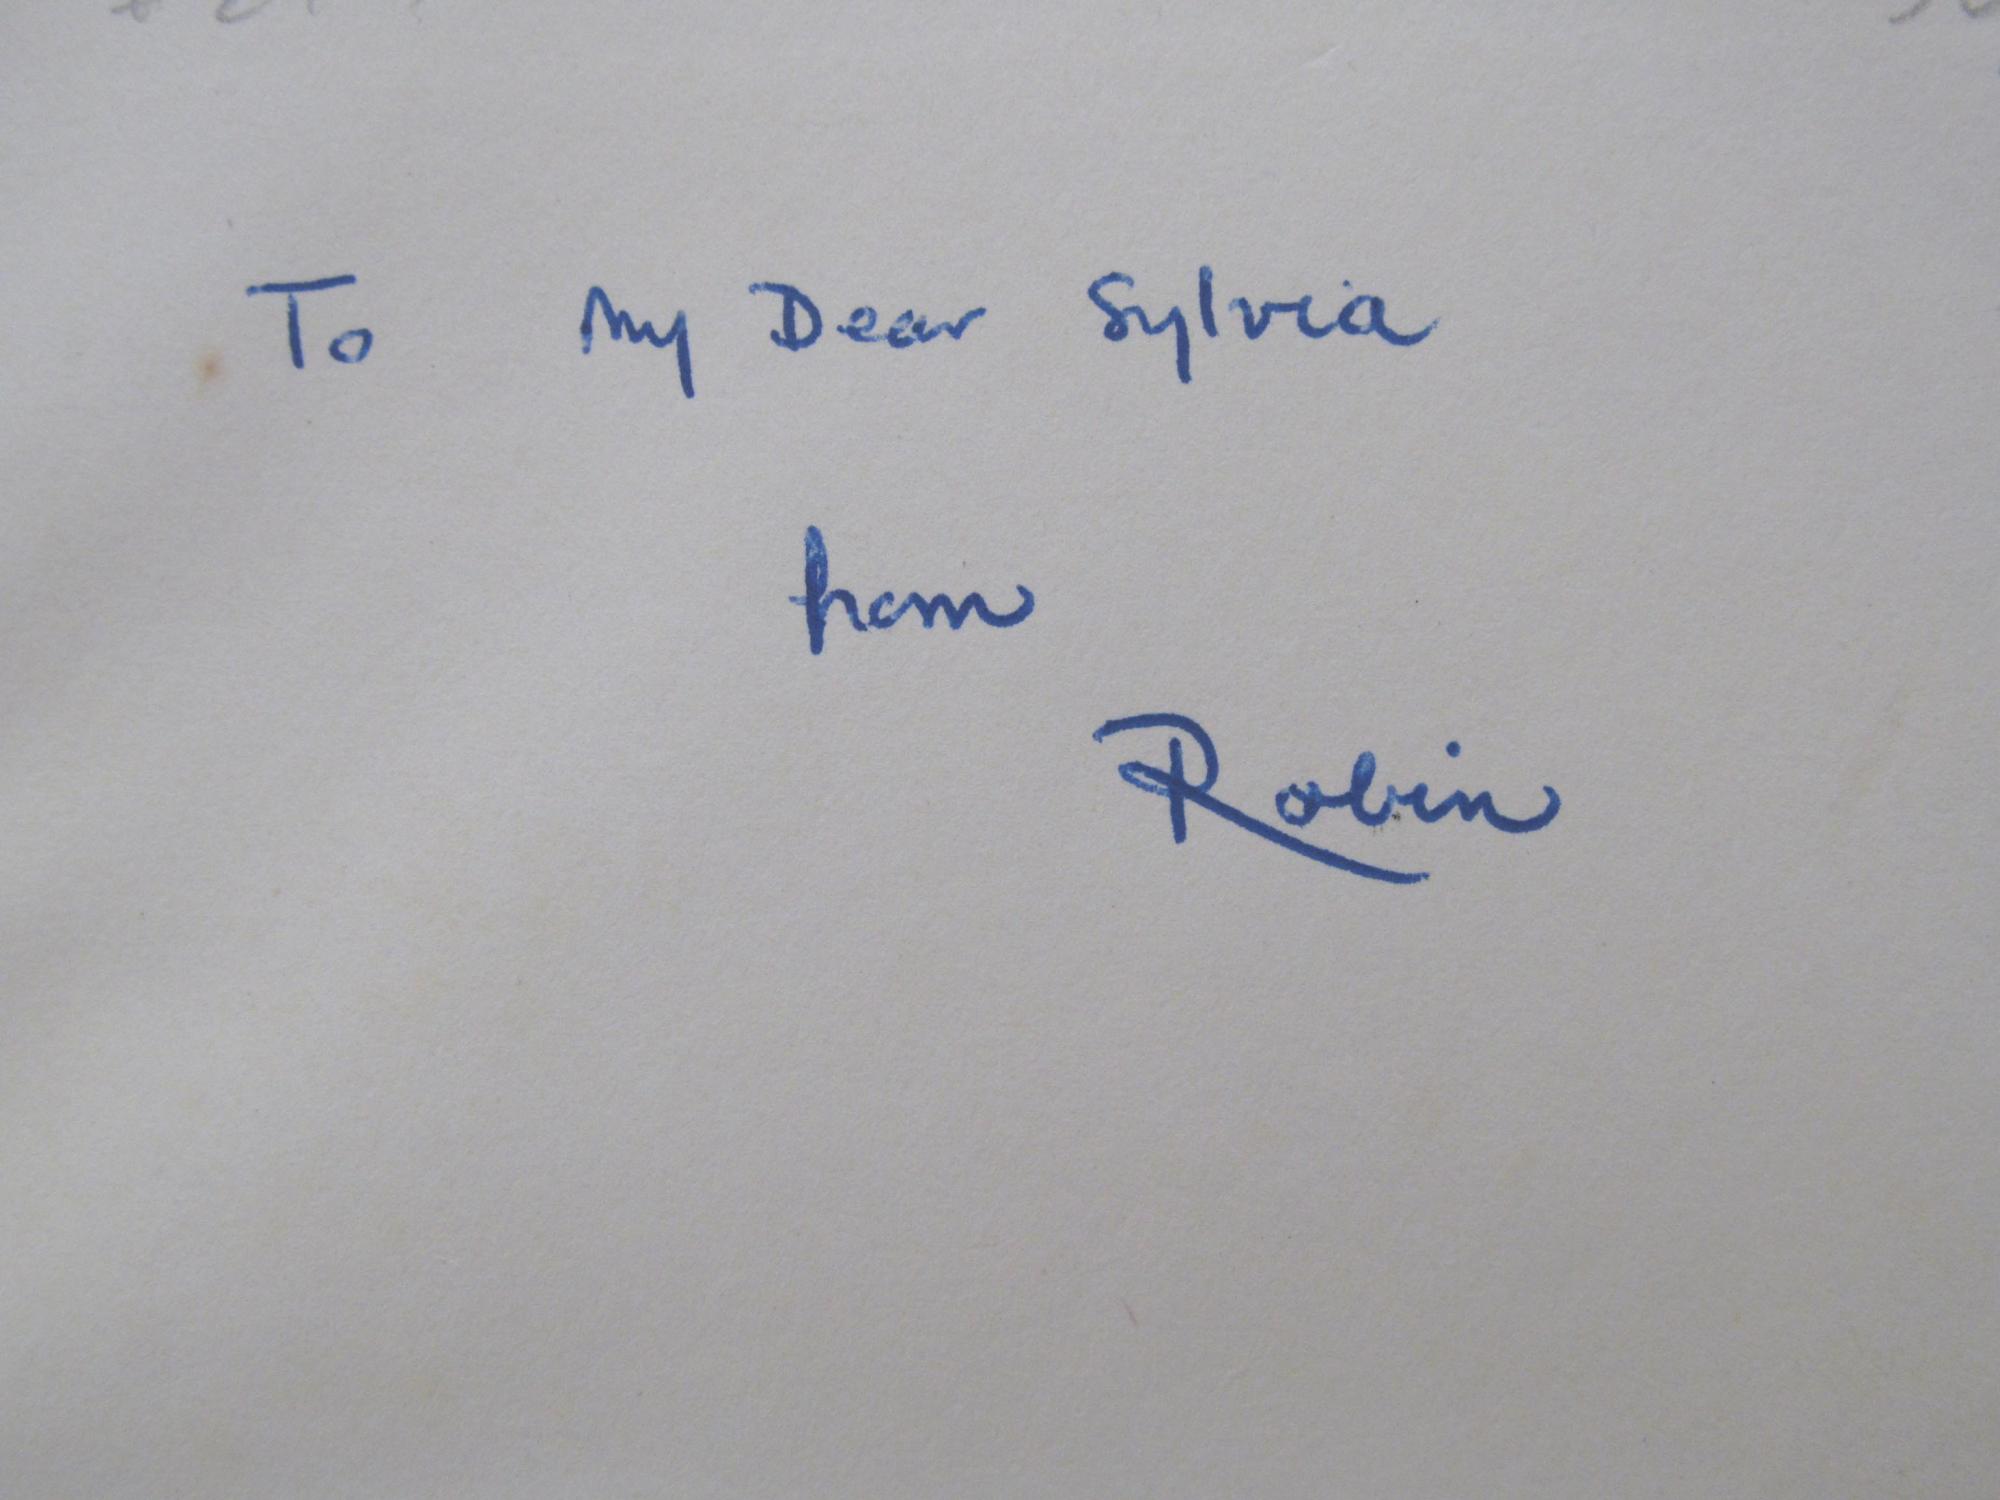 To My Dear Sylvia
from
Robin